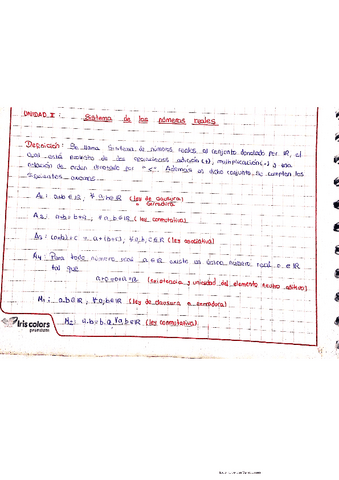 UNIDAD I: Sistema de los números reales
Definición: Se llama Sistema de números reales al conjunto denotado por ℝ, el
cual está provisto de las operaciones adición (+), multiplicación (·) y una
relación de orden denotado por "<". Además en dicho conjunto se cumplen los
siguientes axiomas
A1: a+b ∈ ℝ, ∀ a, b ∈ ℝ (ley de clausura
o cerradura)
A2: a+b = b+a, ∀ a, b ∈ ℝ (ley conmutativa)
A3: (a+b)+c = a+(b+c), ∀ a, b, c ∈ ℝ (ley asociativa)
A4: Para todo número real a ∈ ℝ existe un único número real 0 ∈ ℝ
tal que
a+0=0+a=a (existencia y unicidad del elemento neutro aditivo)
M1: a.b ∈ ℝ, ∀ a, b ∈ ℝ (ley de clausura o cerradura)
M2: a.b = b.a, ∀ a, b ∈ ℝ (ley conmutativa)
Iris colors
premium